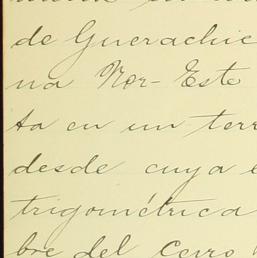 de Guerachic
na Nor-Este
ta en un terr
desde cuya e
trigométrica
bre del Cerro